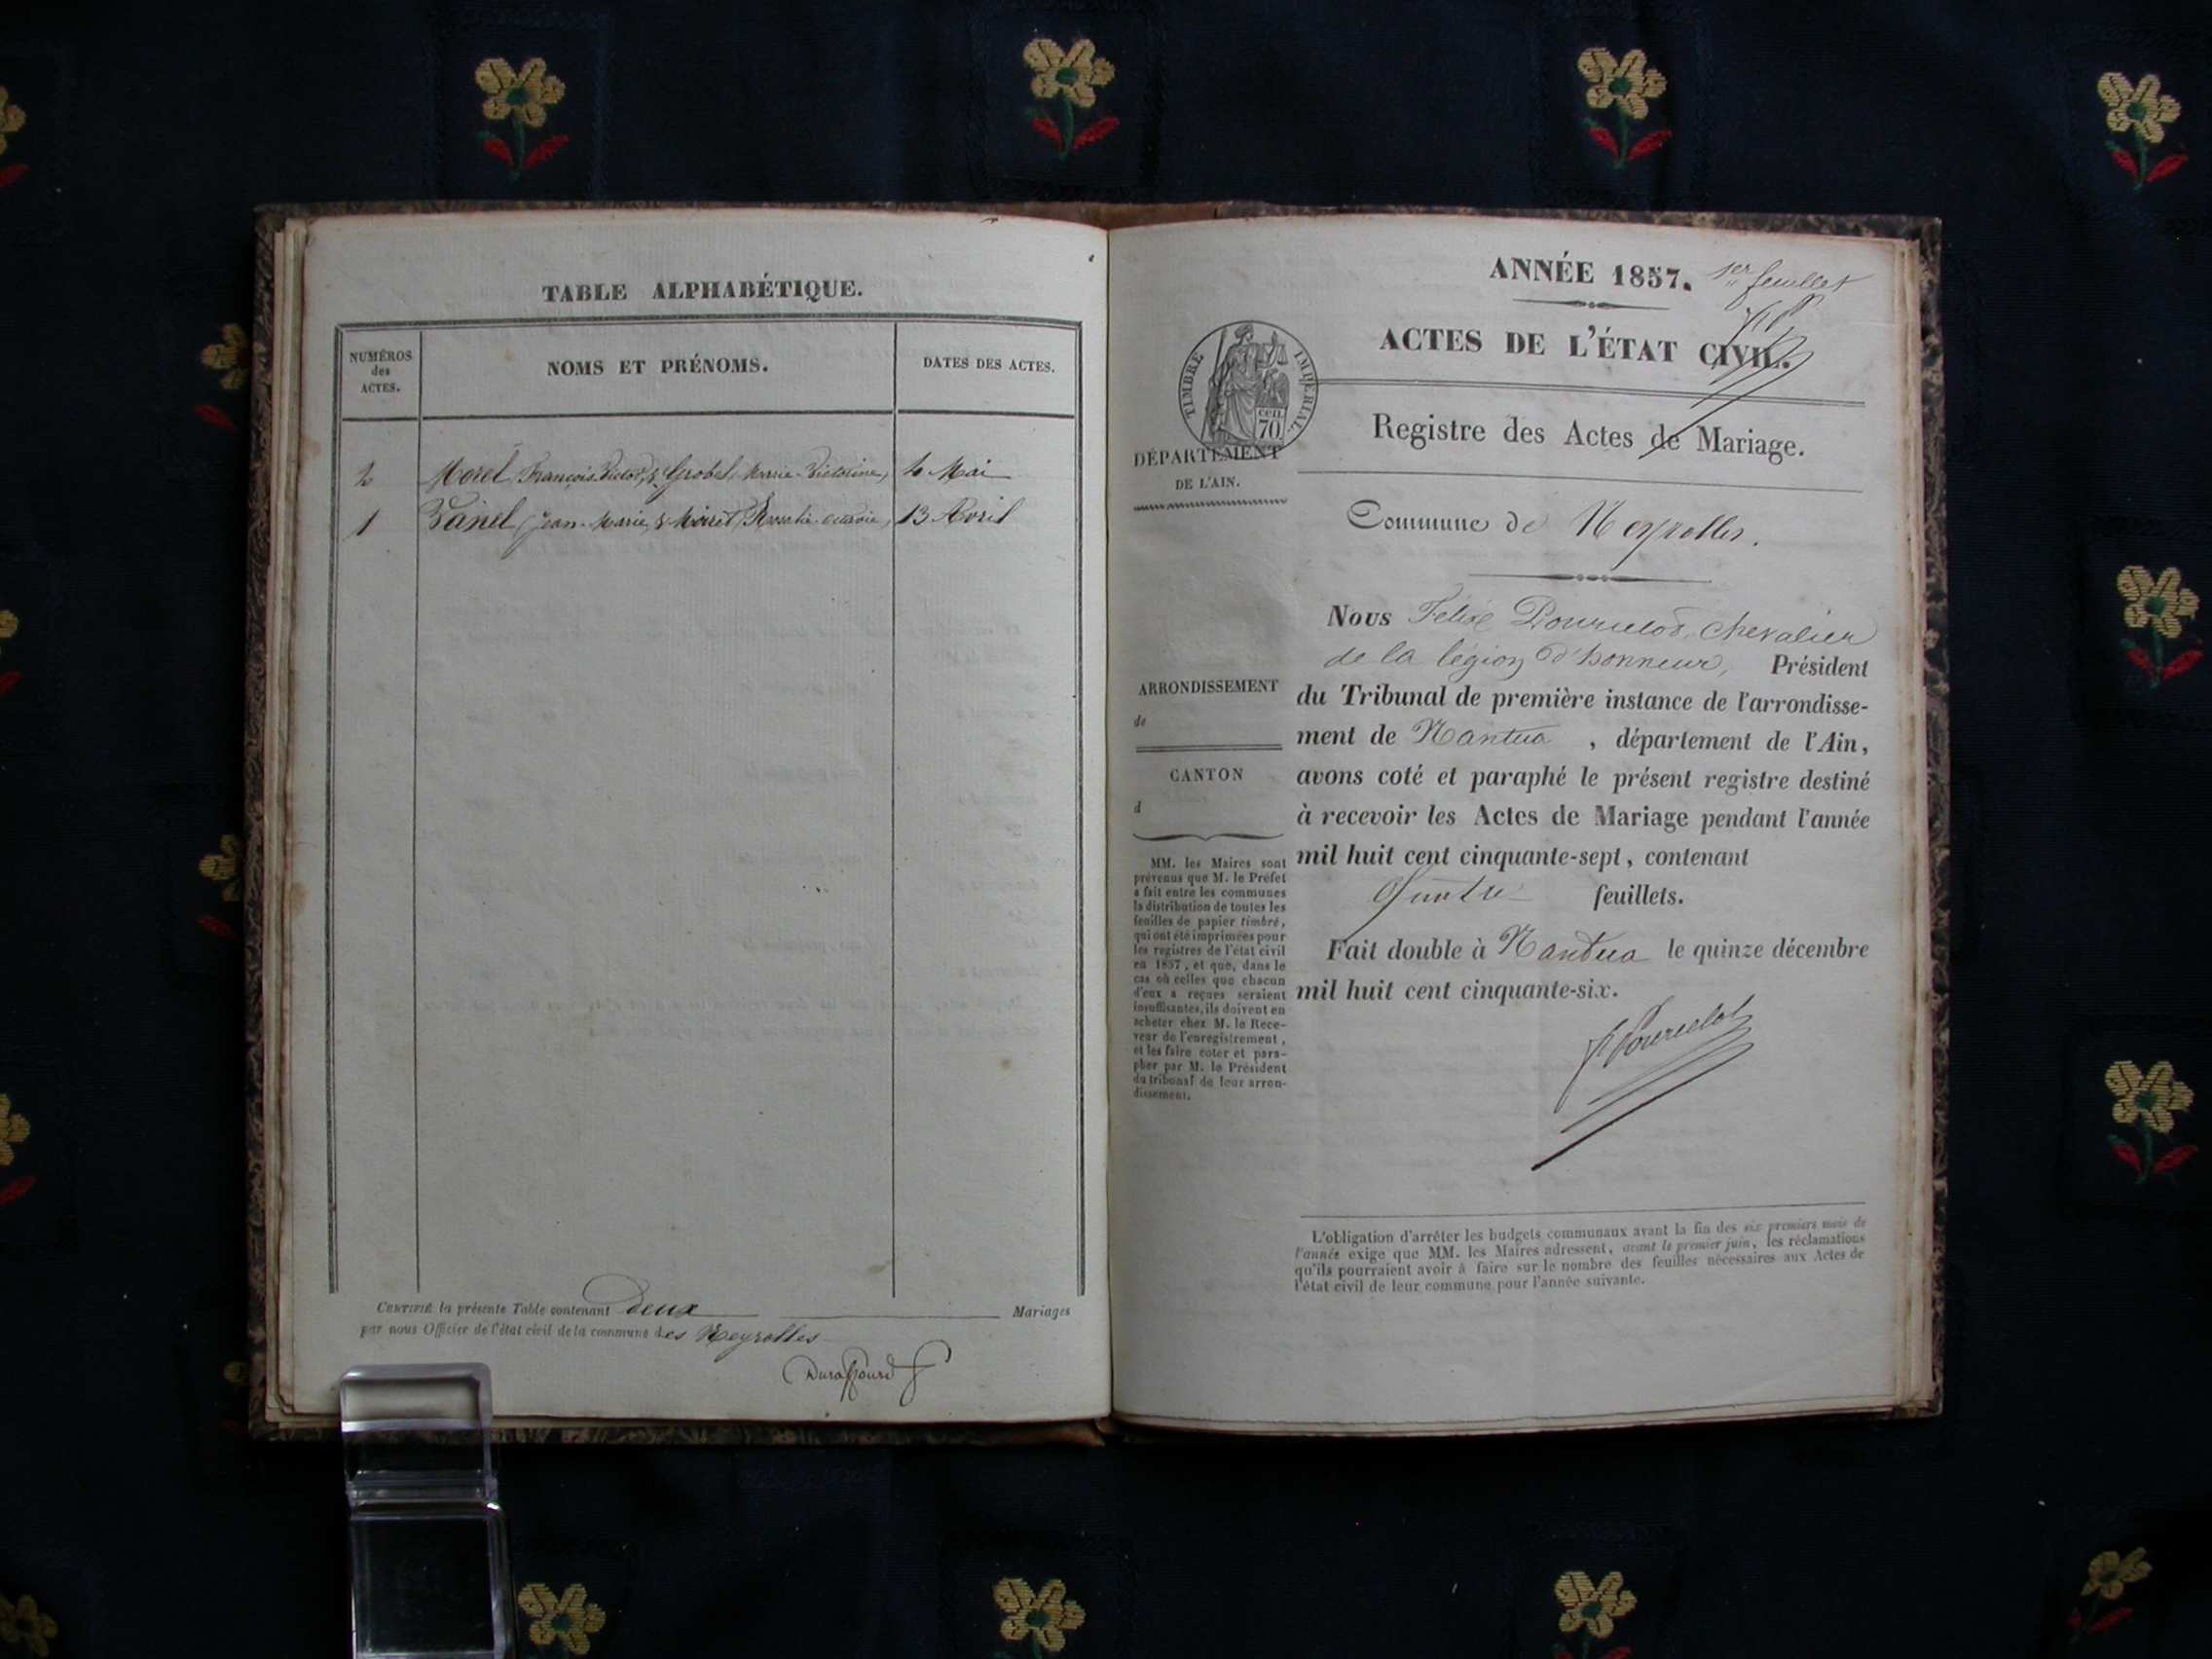 TABLE ALPHABÉTIQUE.
NUMÉROS
des
ACTES.
NOMS ET PRÉNOMS.
DATES DES ACTES.
2 Morel, François-Victor, & Grobel, Marie-Victorine, 4 Mai
1 Vanel, Jean-Marie, & Moiret, 13 Avril
CERTIFIÉ la présente Table contenant deux Mariages
par nous Officier de l'état civil de la commune des Neyrolles
Duraffourd
ANNÉE 1857.
1er feuillet
ACTES DE L'ÉTAT CIVIL.
TIMBRE IMPÉRIAL.
cen.
70.
Registre des Actes de Mariage.
DÉPARTEMENT
DE L'AIN.
Commune de Neyrolles.
Nous Félix Pourcelot, Chevalier
de la légion d'honneur, Président
du Tribunal de première instance de l'arrondisse-
ment de Nantua, département de l'Ain,
avons coté et paraphé le présent registre destiné
à recevoir les Actes de Mariage pendant l'année
mil huit cent cinquante-sept, contenant
Quatre feuillets.
Fait double à Nantua le quinze décembre
mil huit cent cinquante-six.
Pourcelot
ARRONDISSEMENT
de
CANTON
d
MM. les Maires sont
prévenus que M. le Préfet
a fait entre les communes
la distribution de toutes les
feuilles de papier timbré,
qui ont été imprimées pour
les registres de l'état civil
en 1857, et que, dans le
cas où celles que chacun
d'eux a reçues seraient
insuffisantes, ils doivent en
acheter chez M. le Rece-
veur de l'enregistrement,
et les faire coter et para-
pher par M. le Président
du tribunal de leur arron-
dissement.
L'obligation d'arrêter les budgets communaux avant la fin des six premiers mois de
l'année exige que MM. les Maires adressent, avant le premier juin, les réclamations
qu'ils pourraient avoir à faire sur le nombre des feuilles nécessaires aux Actes de
l'état civil de leur commune pour l'année suivante.